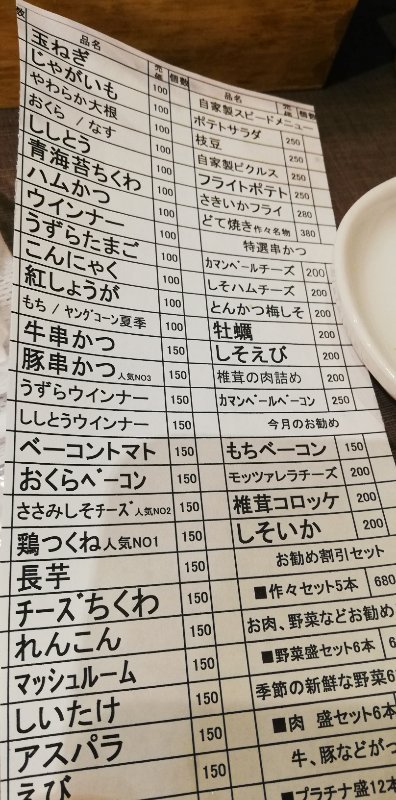 数 品名 売価 個数
玉ねぎ
じゃがいも 100
やわらか大根 100
おくら / なす 100
ししとう 100
青海苔ちくわ 100
ハムかつ 100
ウインナー 100
うずらたまご 100
こんにゃく 100
紅しょうが 100
もち / ヤングコーン夏季 100
牛串かつ 150
豚串かつ人気NO3 150
うずらウインナー 150
ししとうウインナー 150
ベーコントマト 150
おくらベーコン 150
ささみしそチーズ人気NO2 150
鶏つくね人気NO1 150
長芋 150
チーズちくわ 150
れんこん 150
マッシュルーム 150
しいたけ 150
アスパラ 150
えび 150
品名 売価 個数
自家製スピードメニュー
ポテトサラダ 250
枝豆 250
自家製ピクルス 250
フライトポテト 250
さきいかフライ 280
どて焼き作々名物 380
特選串かつ
カマンベールチーズ 200
しそハムチーズ 200
とんかつ梅しそ 200
牡蠣 200
しそえび 200
椎茸の肉詰め 200
カマンベールベーコン 250
今月のお勧め
もちベーコン 150
モッツァレラチーズ 200
椎茸コロッケ 200
しそいか 200
お勧め割引セット
■作々セット5本 680
お肉、野菜などお勧め
■野菜盛セット6本 6
季節の新鮮な野菜6
■肉 盛セット6本
牛、豚などがっ
■プラチナ盛12本